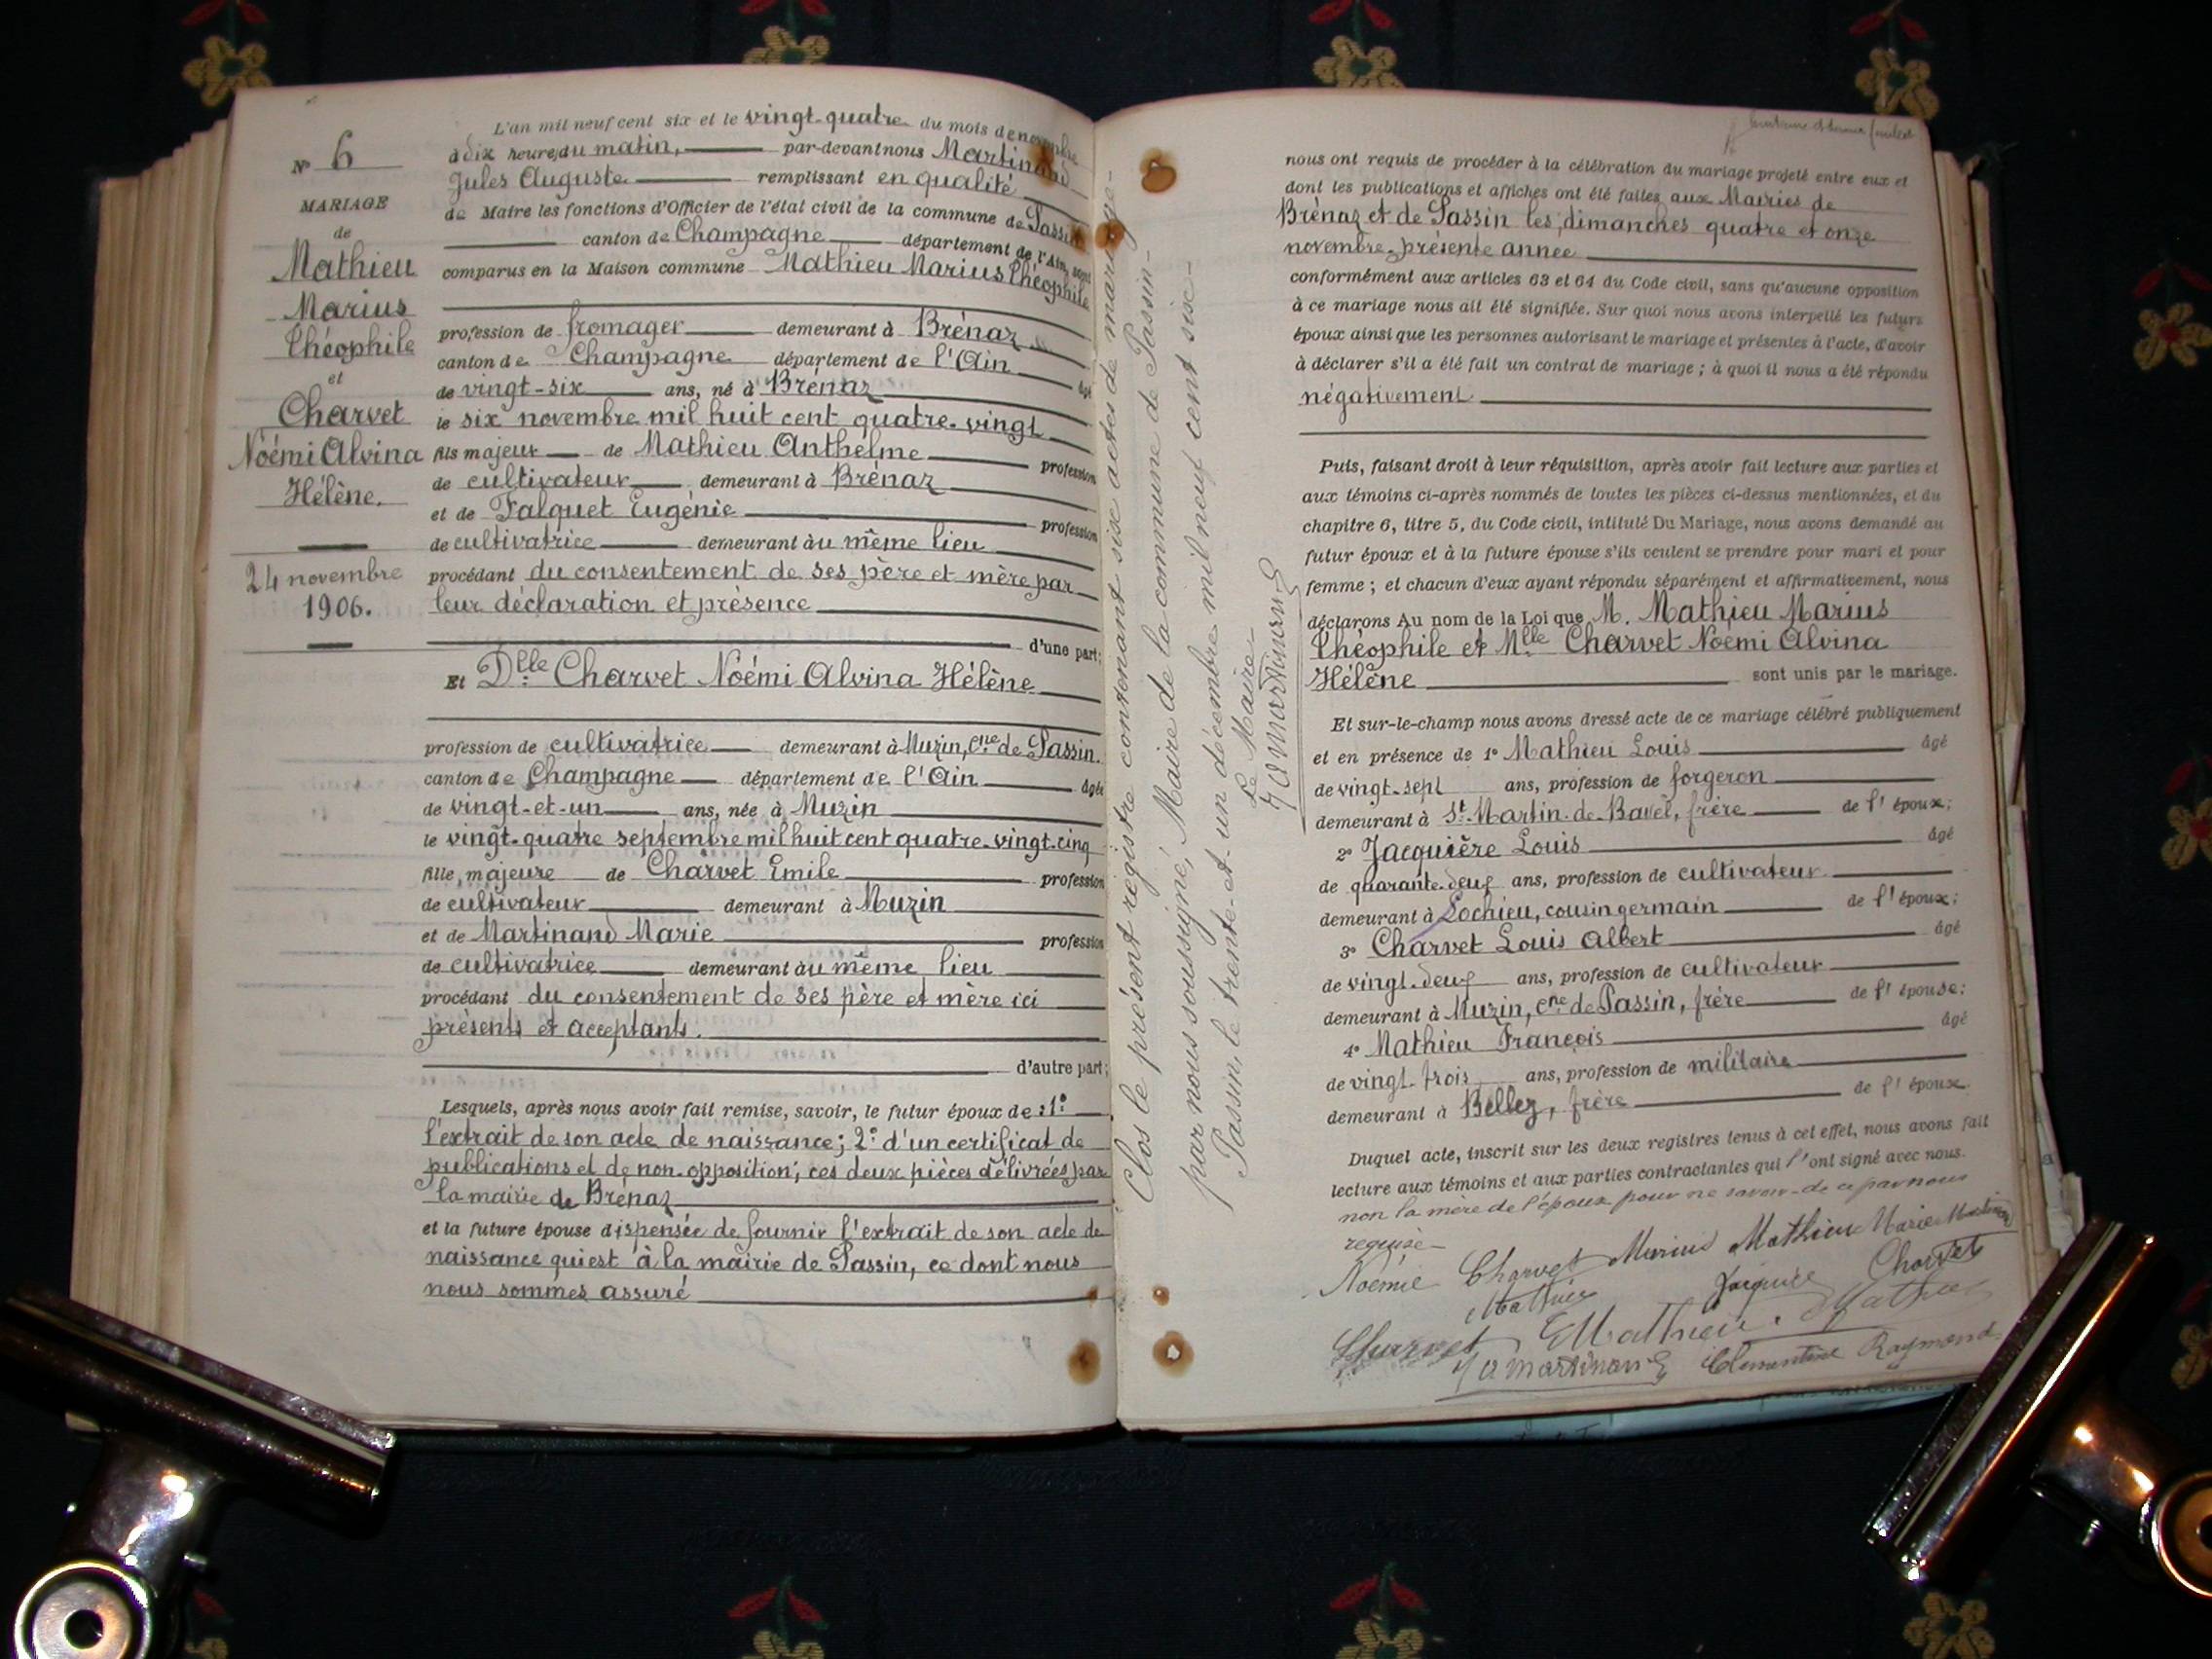 N° 6
MARIAGE
de
Mathieu
Marius
Théophile
et
Charvet
Noémi Alvina
Hélène.
24 novembre
1906.
L'an mil neuf cent six et le vingt-quatre du mois de novembre
à dix heures du matin, par-devant nous Martinand
Jules Auguste remplissant en qualité
de Maire les fonctions d'Officier de l'état civil de la commune de Passin
canton de Champagne département de l'Ain, sont
comparus en la Maison commune Mathieu Marius Théophile
profession de fromager demeurant à Brénaz
canton de Champagne département de l'Ain âgé
de vingt-six ans, né à Brénaz
le six novembre mil huit cent quatre-vingt
fils majeur de Mathieu Anthelme profession
de cultivateur demeurant à Brénaz
et de Falquet Eugénie profession
de cultivatrice demeurant au même lieu
procédant du consentement de ses père et mère par
leur déclaration et présence
d'une part;
Et Dlle Charvet Noémi Alvina Hélène
profession de cultivatrice demeurant à Muzin, cne de Passin.
canton de Champagne département de l'Ain âgée
de vingt-et-un ans, née à Muzin
le vingt-quatre septembre mil huit cent quatre-vingt-cinq
fille majeure de Charvet Emile profession
de cultivateur demeurant à Muzin
et de Martinand Marie profession
de cultivatrice demeurant au même lieu
procédant du consentement de ses père et mère ici
présents et acceptants.
d'autre part;
Lesquels, après nous avoir fait remise, savoir, le futur époux de : 1°
l'extrait de son acte de naissance ; 2° d'un certificat de
publications et de non-opposition; ces deux pièces délivrées par
la mairie de Brénaz
et la future épouse dispensée de fournir l'extrait de son acte de
naissance qui est à la mairie de Passin, ce dont nous
nous sommes assuré
Clos le présent registre contenant six actes de mariage
par nous soussigné, Maire de la commune de Passin
Passin, le trente-et-un décembre mil neuf cent six
Le Maire
JA Martinand
nous ont requis de procéder à la célébration du mariage projeté entre eux et
dont les publications et affiches ont été faites aux Mairies de
Brénaz et de Passin les dimanches quatre et onze
novembre, présente année
conformément aux articles 63 et 64 du Code civil, sans qu'aucune opposition
à ce mariage nous ait été signifiée. Sur quoi nous avons interpellé les futurs
époux ainsi que les personnes autorisant le mariage et présentes à l'acte, d'avoir
à déclarer s'il a été fait un contrat de mariage ; à quoi il nous a été répondu
négativement
Puis, faisant droit à leur réquisition, après avoir fait lecture aux parties et
aux témoins ci-après nommés de toutes les pièces ci-dessus mentionnées, et du
chapitre 6, titre 5, du Code civil, intitulé Du Mariage, nous avons demandé au
futur époux et à la future épouse s'ils veulent se prendre pour mari et pour
femme ; et chacun d'eux ayant répondu séparément et affirmativement, nous
déclarons Au nom de la Loi que M. Mathieu Marius
Théophile et Mlle Charvet Noémi Alvina
Hélène sont unis par le mariage.
Et sur-le-champ nous avons dressé acte de ce mariage célébré publiquement
et en présence de 1° Mathieu Louis âgé
de vingt-sept ans, profession de forgeron
demeurant à St-Martin-de-Bavel, frère de l'époux;
2° Jacquière Louis âgé
de quarante-deux ans, profession de cultivateur
demeurant à Lochieu, cousin germain de l'époux;
3° Charvet Louis Albert âgé
de vingt-deux ans, profession de cultivateur
demeurant à Muzin, cne de Passin, frère de l'épouse;
4° Mathieu François âgé
de vingt-trois ans, profession de militaire
demeurant à Belley, frère de l'époux.
Duquel acte, inscrit sur les deux registres tenus à cet effet, nous avons fait
lecture aux témoins et aux parties contractantes qui l'ont signé avec nous.
non la mère de l'époux pour ne savoir de ce par nous
requise
Noémie Charvet Marius Mathieu Marie Martinand
Mathieu Jacquière Charvet
Charvet E Mathieu Mathieu
JA Martinand Clementine Raymond